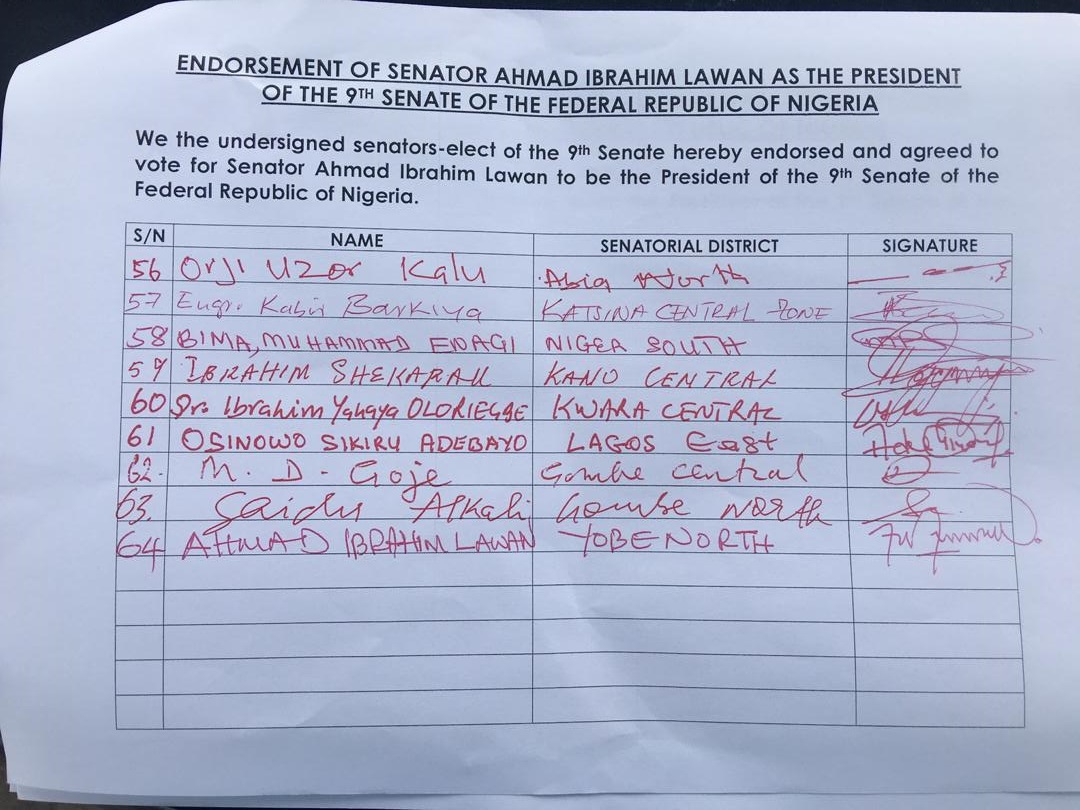 ENDORSEMENT OF SENATOR AHMAD IBRAHIM LAWAN AS THE PRESIDENT
OF THE 9TH SENATE OF THE FEDERAL REPUBLIC OF NIGERIA
We the undersigned senators-elect of the 9th Senate hereby endorsed and agreed to
vote for Senator Ahmad Ibrahim Lawan to be the President of the 9th Senate of the
Federal Republic of Nigeria.
S/N NAME SENATORIAL DISTRICT SIGNATURE
56 Orji Uzor Kalu Abia North
57 Engr. Kabir Barkiya KATSINA CENTRAL ZONE
58 BIMA, MUHAMMAD ENAGI NIGER SOUTH
59 IBRAHIM SHEKARAU KANO CENTRAL
60 Dr. Ibrahim Yahaya OLORIEGBE KWARA CENTRAL
61 OSINOWO SIKIRU ADEBAYO LAGOS East
62. M. D. Goje Gombe central
63. Saidu Alkali Gombe North
64 AHMAD IBRAHIM LAWAN YOBE NORTH